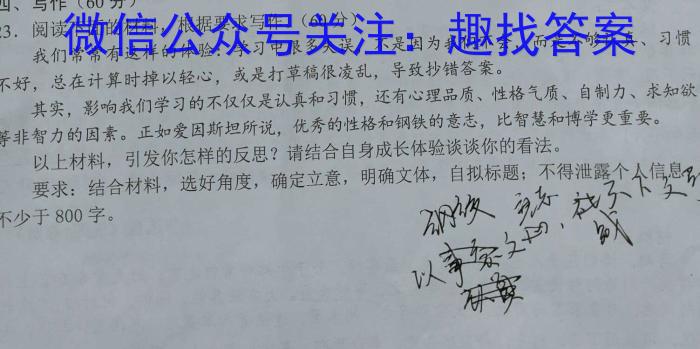 四、写作(60分)
23. 阅读下面的材料,根据要求写作。(60分)
微信公众号关注:趣找答案
我们常常有这样的体验:学习中很多失误,不是因为我们不会,而是不够认真、习惯
不好,总在计算时掉以轻心,或是打草稿很凌乱,导致抄错答案。
其实,影响我们学习的不仅仅是认真和习惯,还有心理品质、性格气质、自制力、求知欲
等非智力的因素。正如爱因斯坦所说,优秀的性格和钢铁的意志,比智慧和博学更重要。
以上材料,引发你怎样的反思?请结合自身成长体验谈谈你的看法。
要求:结合材料,选好角度,确定立意,明确文体,自拟标题;不得泄露个人信息
不少于 800 字。
钢铁
以